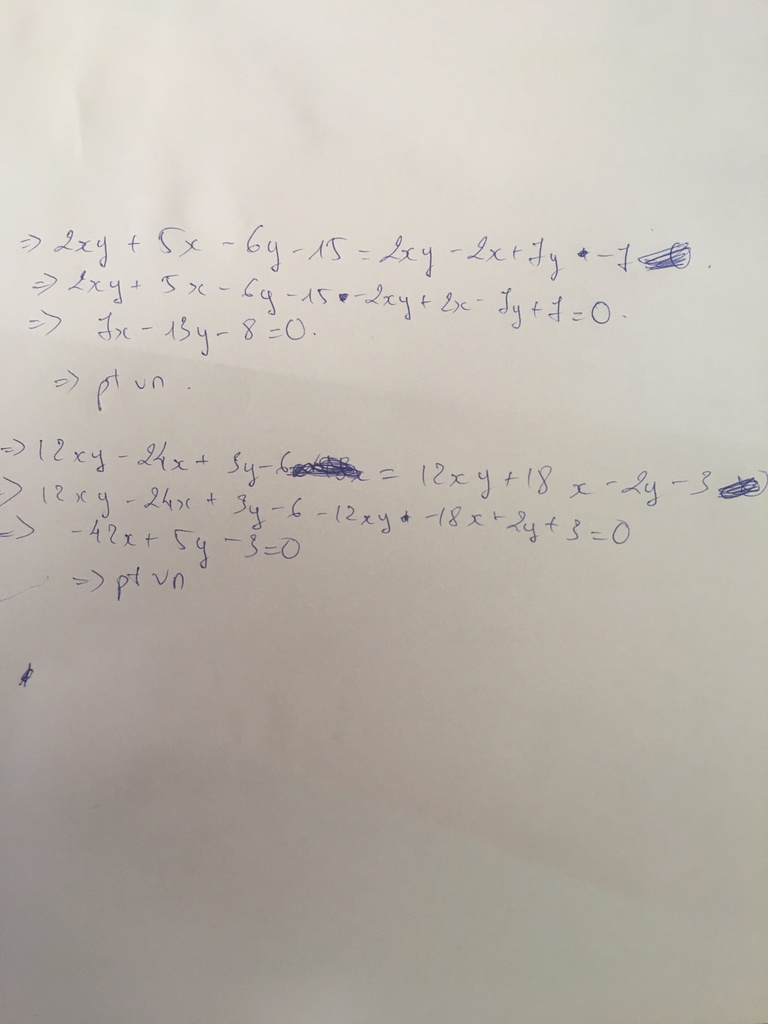 => 2xy + 5x - 6y - 15 = 2xy - 2x + 7y - 7
=> 2xy + 5x - 6y - 15 - 2xy + 2x - 7y + 7 = 0.
=> 7x - 13y - 8 = 0.
=> pt vn.
=> 12xy - 24x + 3y - 6 = 12xy + 18x - 2y - 3
=> 12xy - 24x + 3y - 6 - 12xy - 18x + 2y + 3 = 0
=> -42x + 5y - 3 = 0
=> pt vn